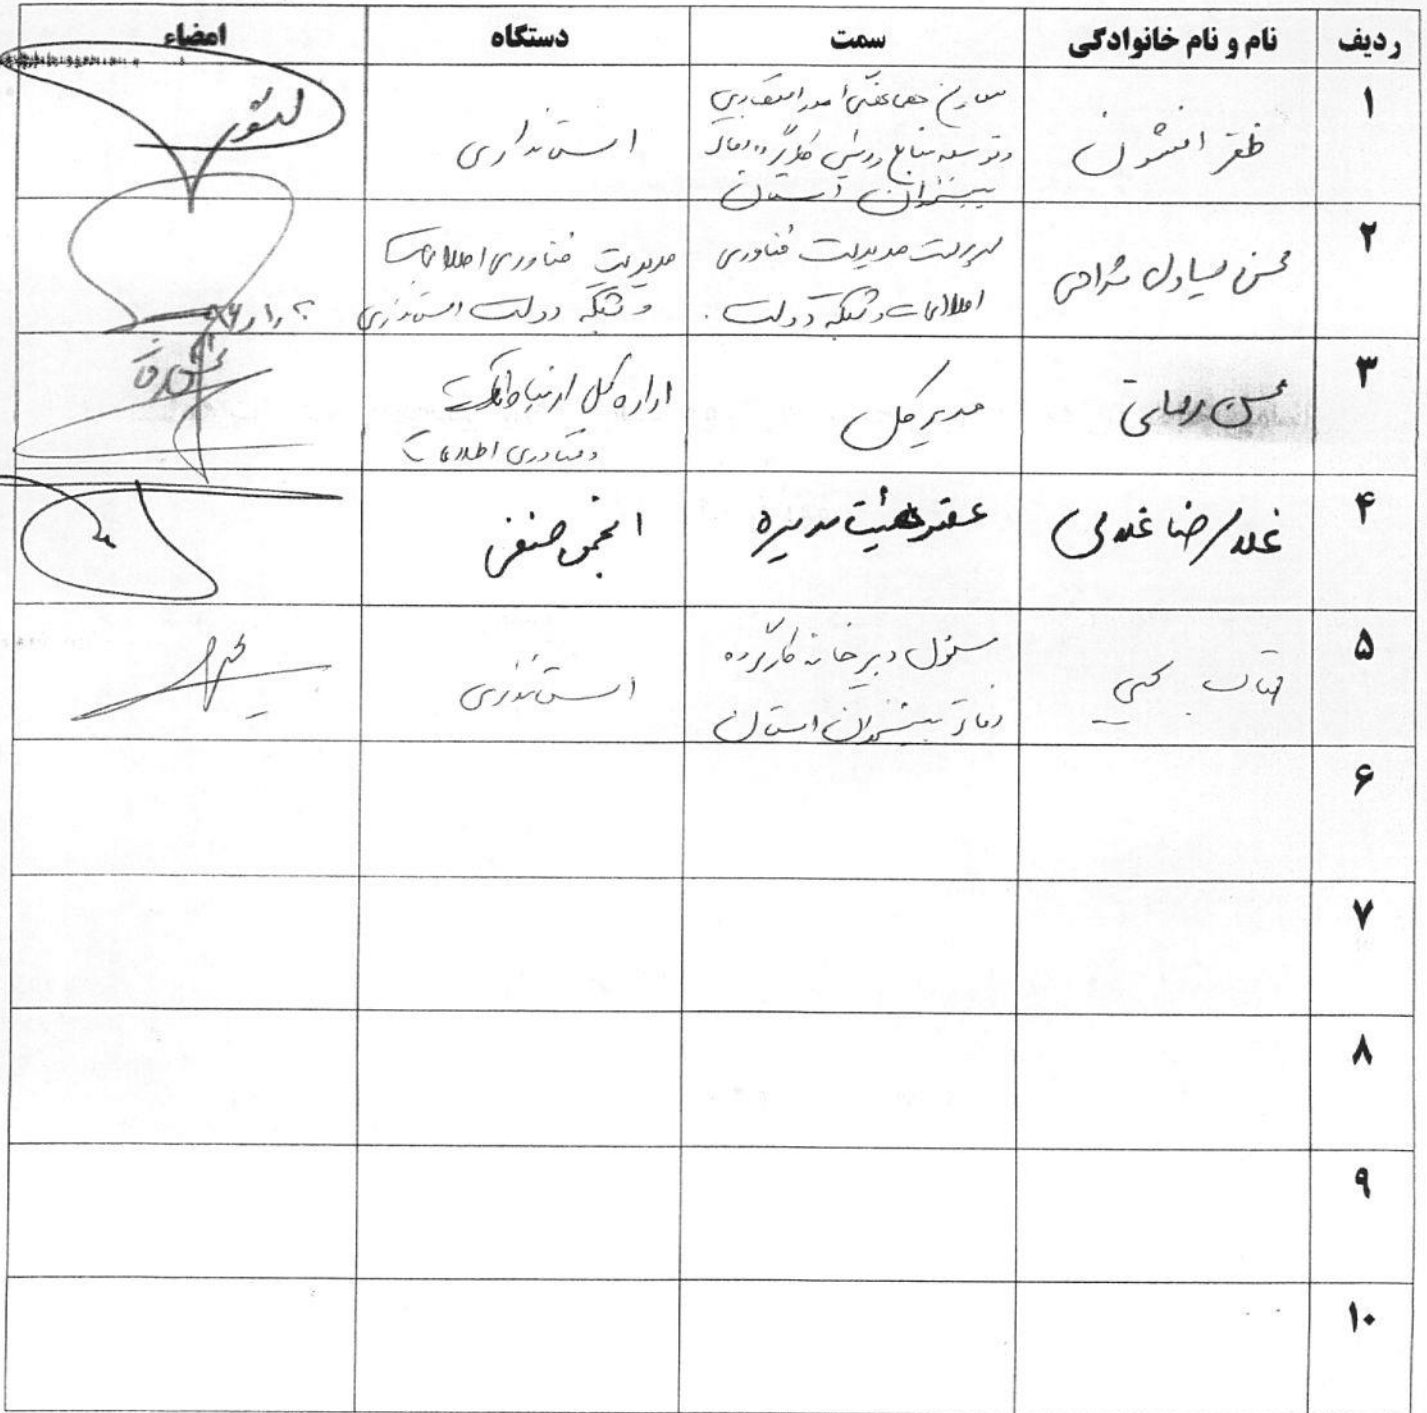 ردیف نام و نام خانوادگی سمت دستگاه امضاء
۱ ظفر افشون
معاون هماهنگی امور اقتصادی
و توسعه منابع و رئیس کارگروه دفاتر
پیشخوان استان
استانداری
۲ محسن
سرپرست مدیریت فناوری
اطلاعات و شبکه دولت
مدیریت فناوری اطلاعات
و شبکه دولت استانداری
۳ محسن رضائی
مدیر کل
اداره کل ارتباطات
و فناوری اطلاعات
۴ غلامرضا غلامی عضو هیئت مدیره انجمن صنفی
۵
مسئول دبیرخانه کارگروه
دفاتر پیشخوان استان
استانداری
۶
۷
۸
۹
۱۰